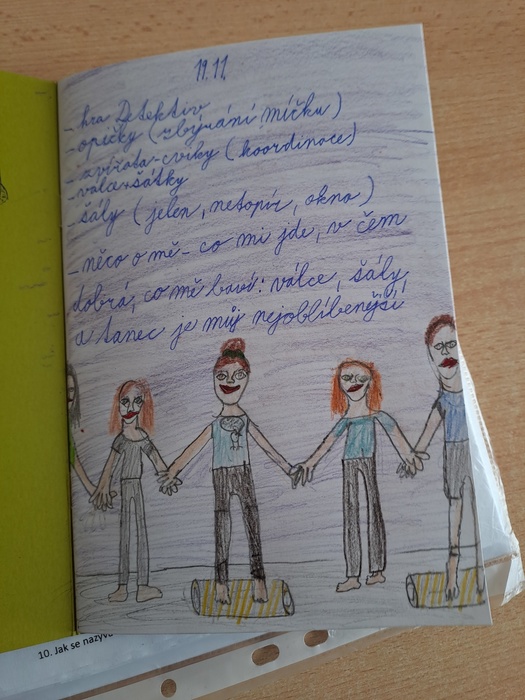 19.11.
- hra Detektiv
- opičky (zbývání míčku)
- zvířata-cviky (koordinace)
- válce+šátky
- šály (jelen, netopír, okno)
- něco o mě - co mi jde, v čem
dobrá, co mě baví: válce, šály
a tanec je můj nejoblíbenější
10. Jak se nazýv